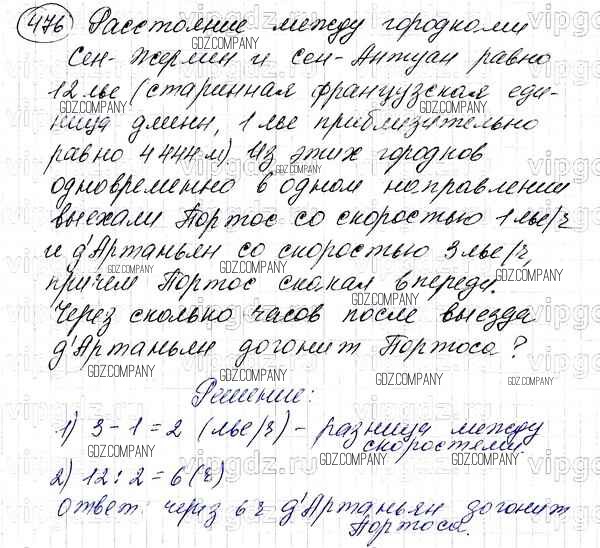 476 Расстояние между городками
Сен-Жермен и Сен-Антуан равно
12 лье (старинная французская еди-
ница длинн, 1 лье приблизительно
равно 4 444 м). Из этих городков
одновременно в одном направлении
выехали Портос со скоростью 1 лье/г
и д'Артаньян со скоростью 3 лье/г,
причем Портос скакал впереди.
Через сколько часов после выезда
д'Артаньян догонит Портоса?
Решение:
1) 3 - 1 = 2 (лье/г) - разница между
скоростями.
2) 12 : 2 = 6 (г)
Ответ: через 6 г д'Артаньян догонит
Портоса.